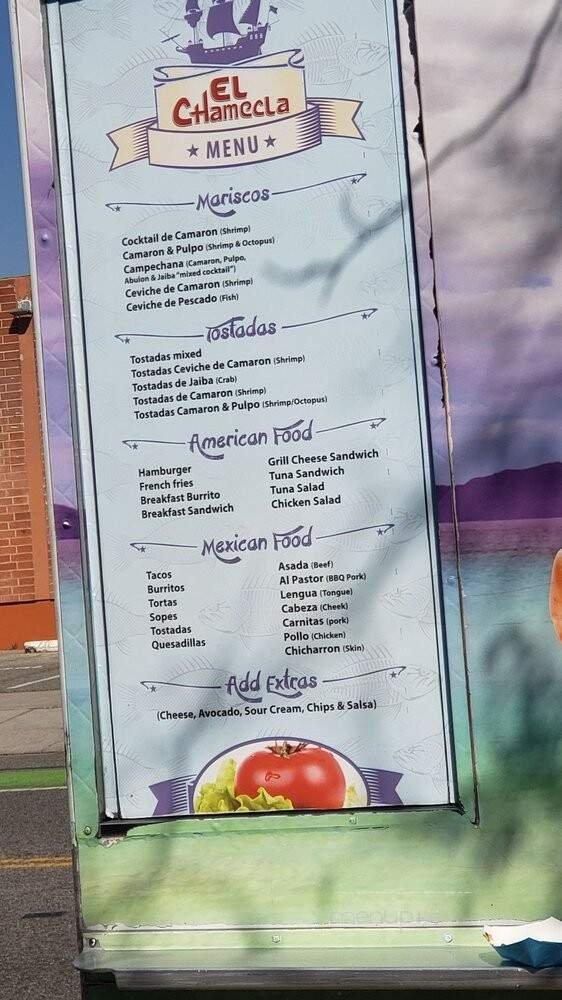 EL
CHamecla
MENU
Mariscos
Cocktail de Camaron (Shrimp)
Camaron & Pulpo (Shrimp & Octopus)
Campechana (Camaron, Pulpo,
Abulon & Jaiba "mixed cocktail")
Ceviche de Camaron (Shrimp)
Ceviche de Pescado (Fish)
Tostadas
Tostadas mixed
Tostadas Ceviche de Camaron (Shrimp)
Tostadas de Jaiba (Crab)
Tostadas de Camaron (Shrimp)
Tostadas Camaron & Pulpo (Shrimp/Octopus)
American Food
Hamburger
French fries
Breakfast Burrito
Breakfast Sandwich
Grill Cheese Sandwich
Tuna Sandwich
Tuna Salad
Chicken Salad
Mexican Food
Tacos
Burritos
Tortas
Sopes
Tostadas
Quesadillas
Asada (Beef)
Al Pastor (BBQ Pork)
Lengua (Tongue)
Cabeza (Cheek)
Carnitas (pork)
Pollo (Chicken)
Chicharron (Skin)
Add Extras
(Cheese, Avocado, Sour Cream, Chips & Salsa)